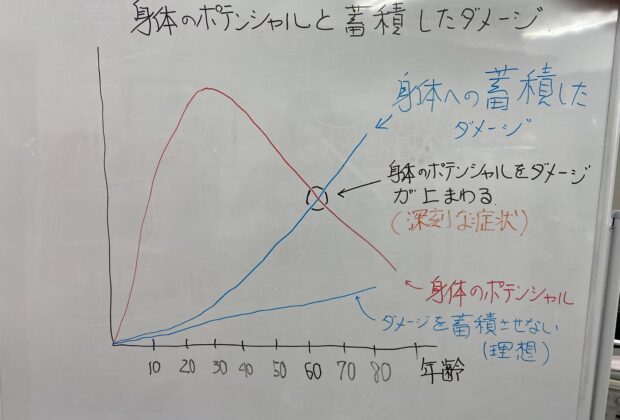 身体のポテンシャルと蓄積したダメージ
身体への蓄積した
ダメージ
身体のポテンシャルをダメージ
が上まわる
(深刻な症状)
身体のポテンシャル
ダメージを蓄積させない
(理想)
10 20 30 40 50 60 70 80 年齢